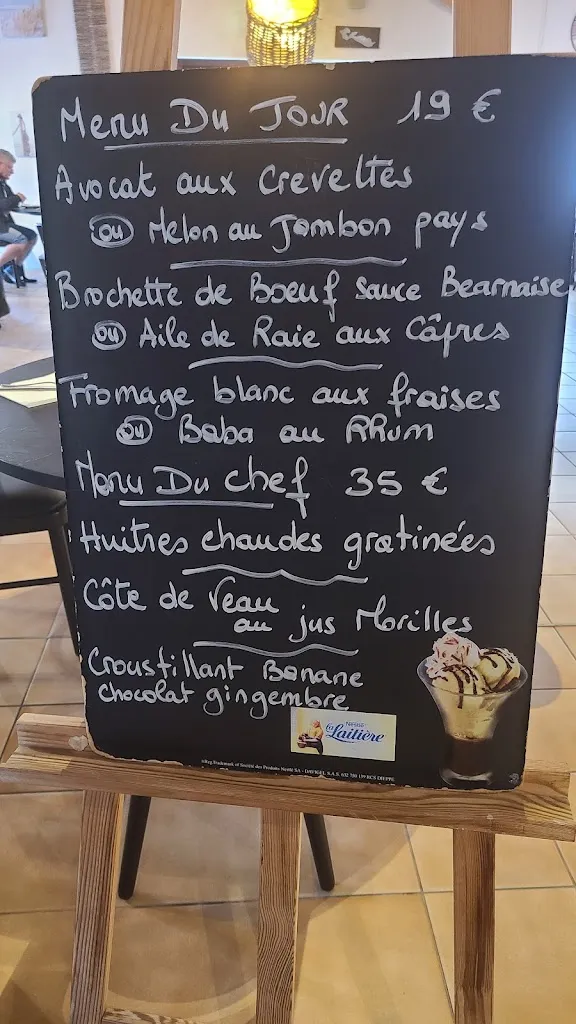 Menu Du JOUR 19 €
Avocat aux Crevettes
ou Melon au Jambon pays
Brochette de Boeuf Sauce Bearnaise
ou Aile de Raie aux Câpres
Fromage blanc aux fraises
ou Baba au RRum
Menu Du chef 35 €
Huitres chaudes gratinées
Côte de Veau
au jus Morilles
Croustillant Banane
chocolat gingembre
Nestlé
La Laitière
®Reg.Trademark of Société des Produits Nestlé SA - DAVIGEL S.A.S. 632 780 139 RCS DIEPPE